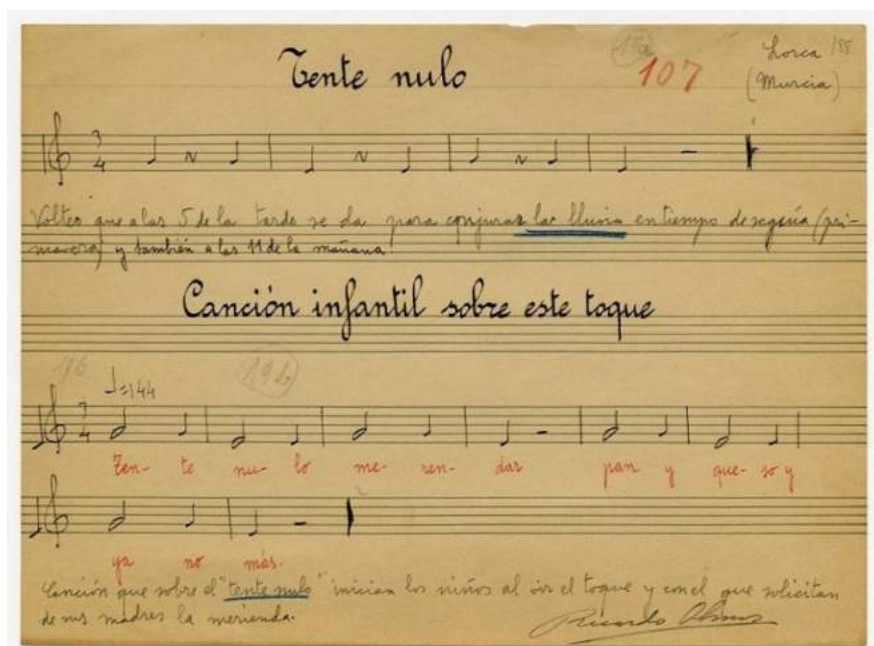 Tente nulo
107
Lorca 188
(Murcia)
3
4
Volteo que a las 5 de la tarde se da para conjurar las lluvia en tiempo de seguía (pri-
mavera) y también a las 11 de la mañana.
Canción infantil sobre este toque
196
19b
♩=144
3
4
Ten- te nu- lo me- ren- dar pan y que- so y
ya no más.
Canción que sobre el "tente nulo" inician los niños al oir el toque y con el que solicitan
de sus madres la merienda.
Ricardo Olmos